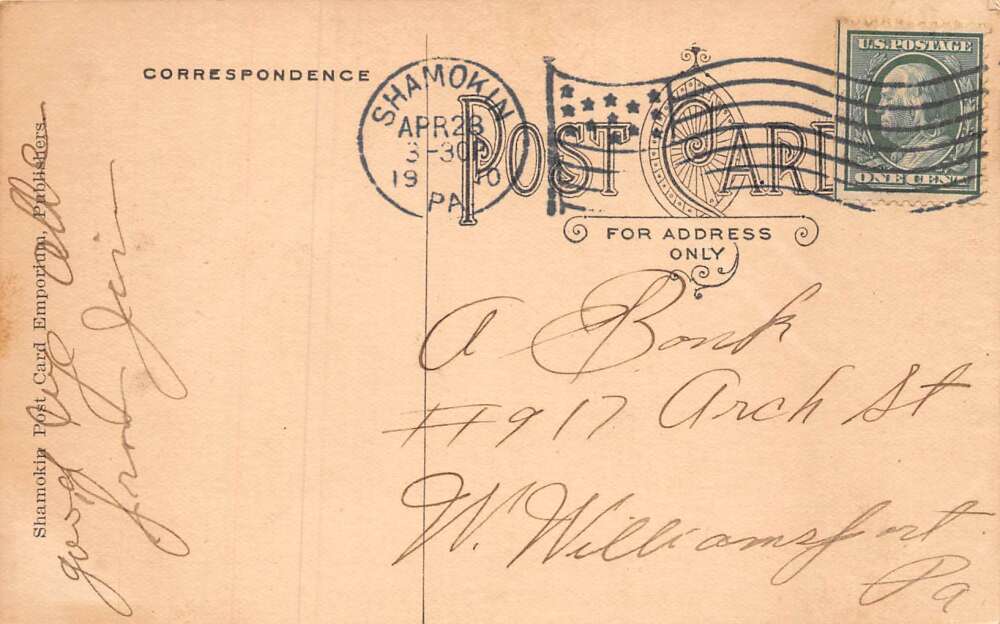 CORRESPONDENCE
SHAMOKIN
APR 28
3-30P
19 10
PA.
U.S. POSTAGE
ONE CENT
POST CARD
FOR ADDRESS
ONLY
A Bonk
#917 Arch St
W. Williamsport
Pa
Shamokin Post Card Emporium, Publishers.
good bye all
friend